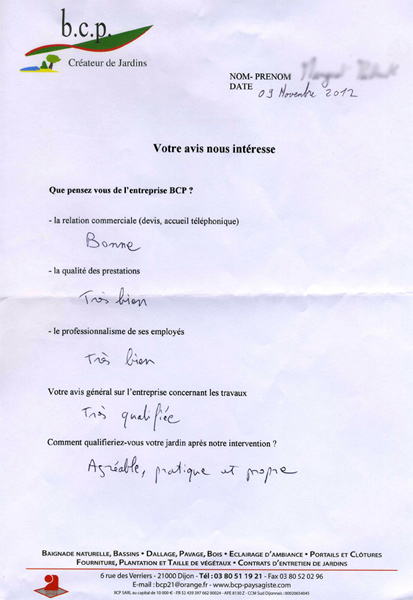 b.c.p.
Créateur de Jardins
NOM- PRENOM
DATE 09 Novembre 2012
Votre avis nous intéresse
Que pensez vous de l'entreprise BCP ?
- la relation commerciale (devis, accueil téléphonique)
Bonne
- la qualité des prestations
Très bien
- le professionnalisme de ses employés
Très bien
Votre avis général sur l'entreprise concernant les travaux
Très qualifiée
Comment qualifieriez-vous votre jardin après notre intervention ?
Agréable, pratique et propre
BAIGNADE NATURELLE, BASSINS • DALLAGE, PAVAGE, BOIS • ECLAIRAGE D'AMBIANCE • PORTAILS ET CLÔTURES
FOURNITURE, PLANTATION ET TAILLE DE VÉGÉTAUX • CONTRATS D'ENTRETIEN DE JARDINS
6 rue des Verriers - 21000 Dijon - Tél : 03 80 51 19 21 - Fax 03 80 52 02 96
E-mail : bcp21@orange.fr - www.bcp-paysagiste.com
BCP SARL au capital de 10 000 € - FR 52 439 397 662 00024 - APE 8130 Z - CCM Sud Dijonnais : 00020654045